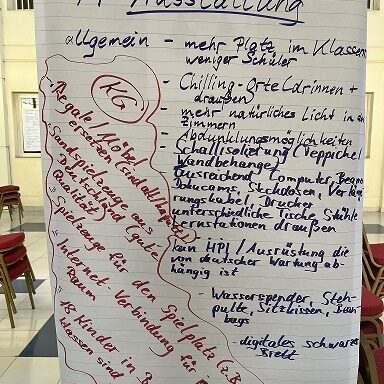 Ausstattung
allgemein - mehr Platz im Klassen
weniger Schüler
- Chilling-Orte (drinnen +
draußen)
- mehr natürliches Licht in
zimmern
- Abdunklungsmöglichkeiten
- Schallisolierung (Teppiche
Wandbehänge)
ausreichend Computer, Beamer
Dokucams, Steckdosen, Verlänge
rungskabel, Drucker
unterschiedliche Tische, Stühle
Lernstationen draußen
kein HPI/Ausrüstung die
von deutscher Wartung ab-
hängig ist
- Wasserspender, Steh-
pulte, Sitzkissen, Bean
bags
- digitales schwarze
Brett
KG
- Regale/Möbel
ersetzen (sind alt/kaputt)
- Sandspielzeuge aus
Deutschland (gute
Qualität)
- Spielzeuge für den Spielplatz (z.B.
- Internet-Verbindung für
Raum
- 18 Kinder in
Klassen sind